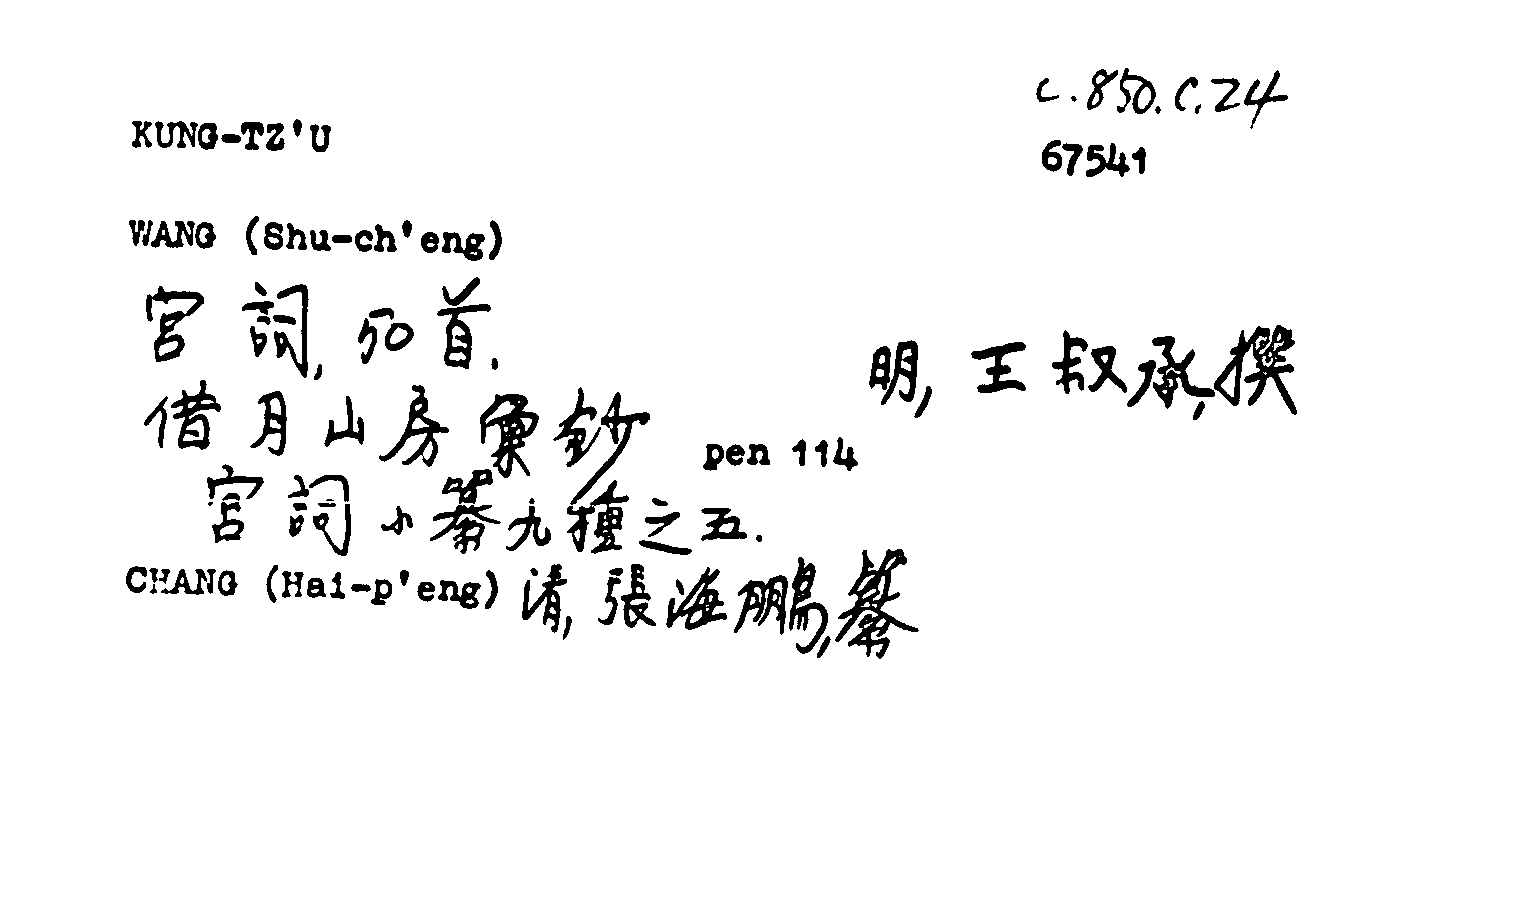 C.850.C.24
KUNG-TZ'U
67541
WANG (Shu-ch'eng)
宮詞, 50首.
明, 王叔承, 撰
借月山房彙鈔 pen 114
宮詞小纂九種之五.
CHANG (Hai-p'eng) 清, 張海鵬, 纂